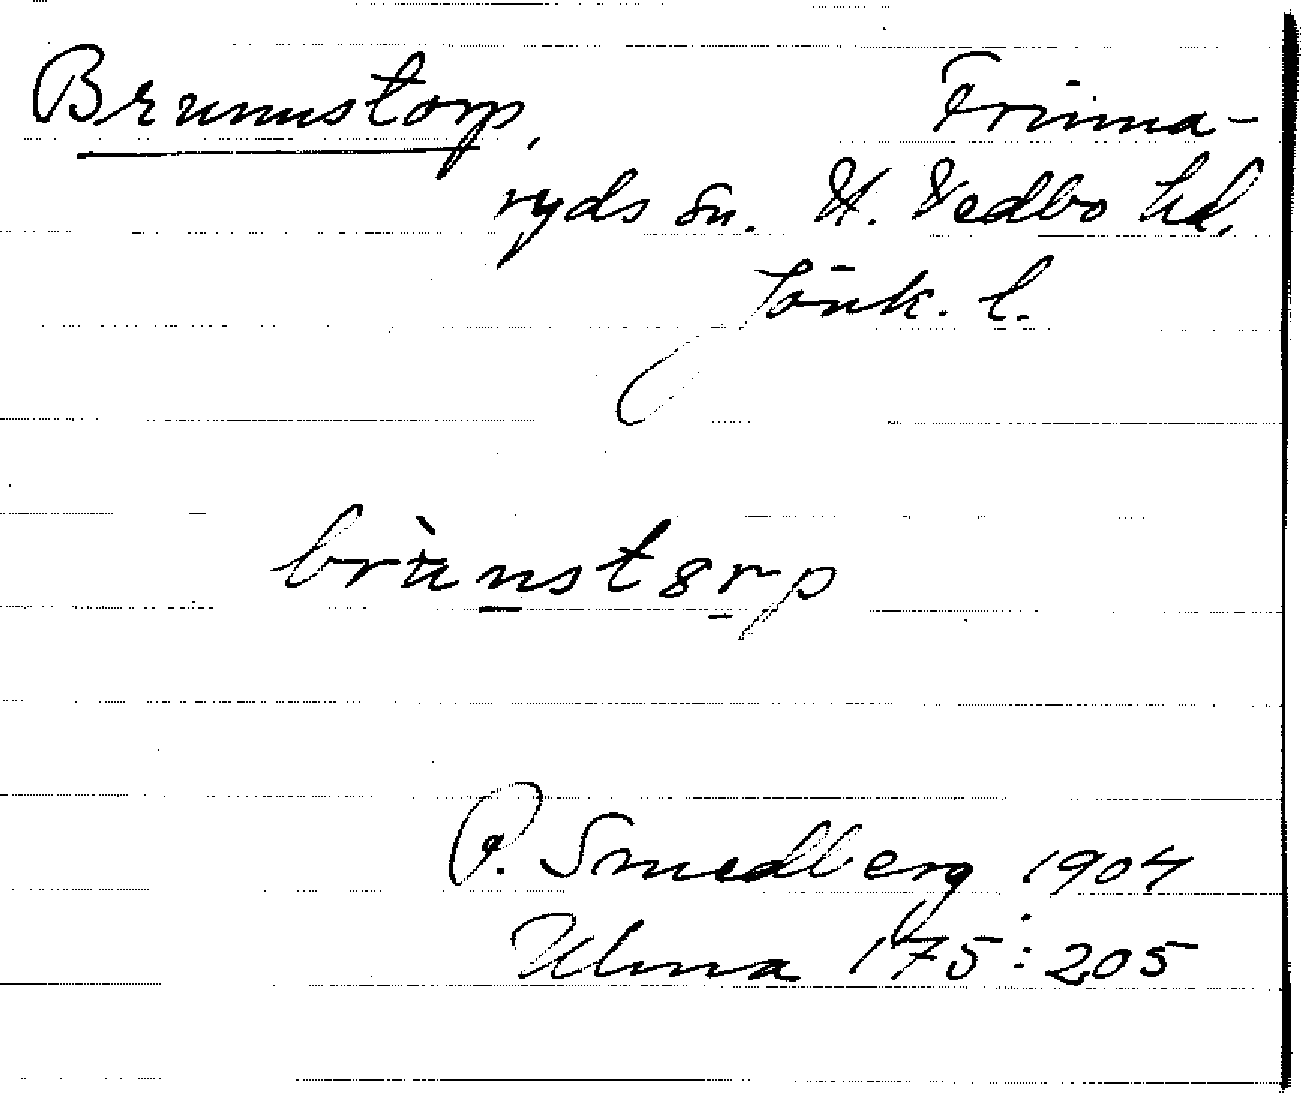 Brunnstorp, Frinna-
ryds sn. N. Vedbo hd,
Jönk. l.
brùn̲st8r̲p
P. Smedberg 1904
Ulma 175:205